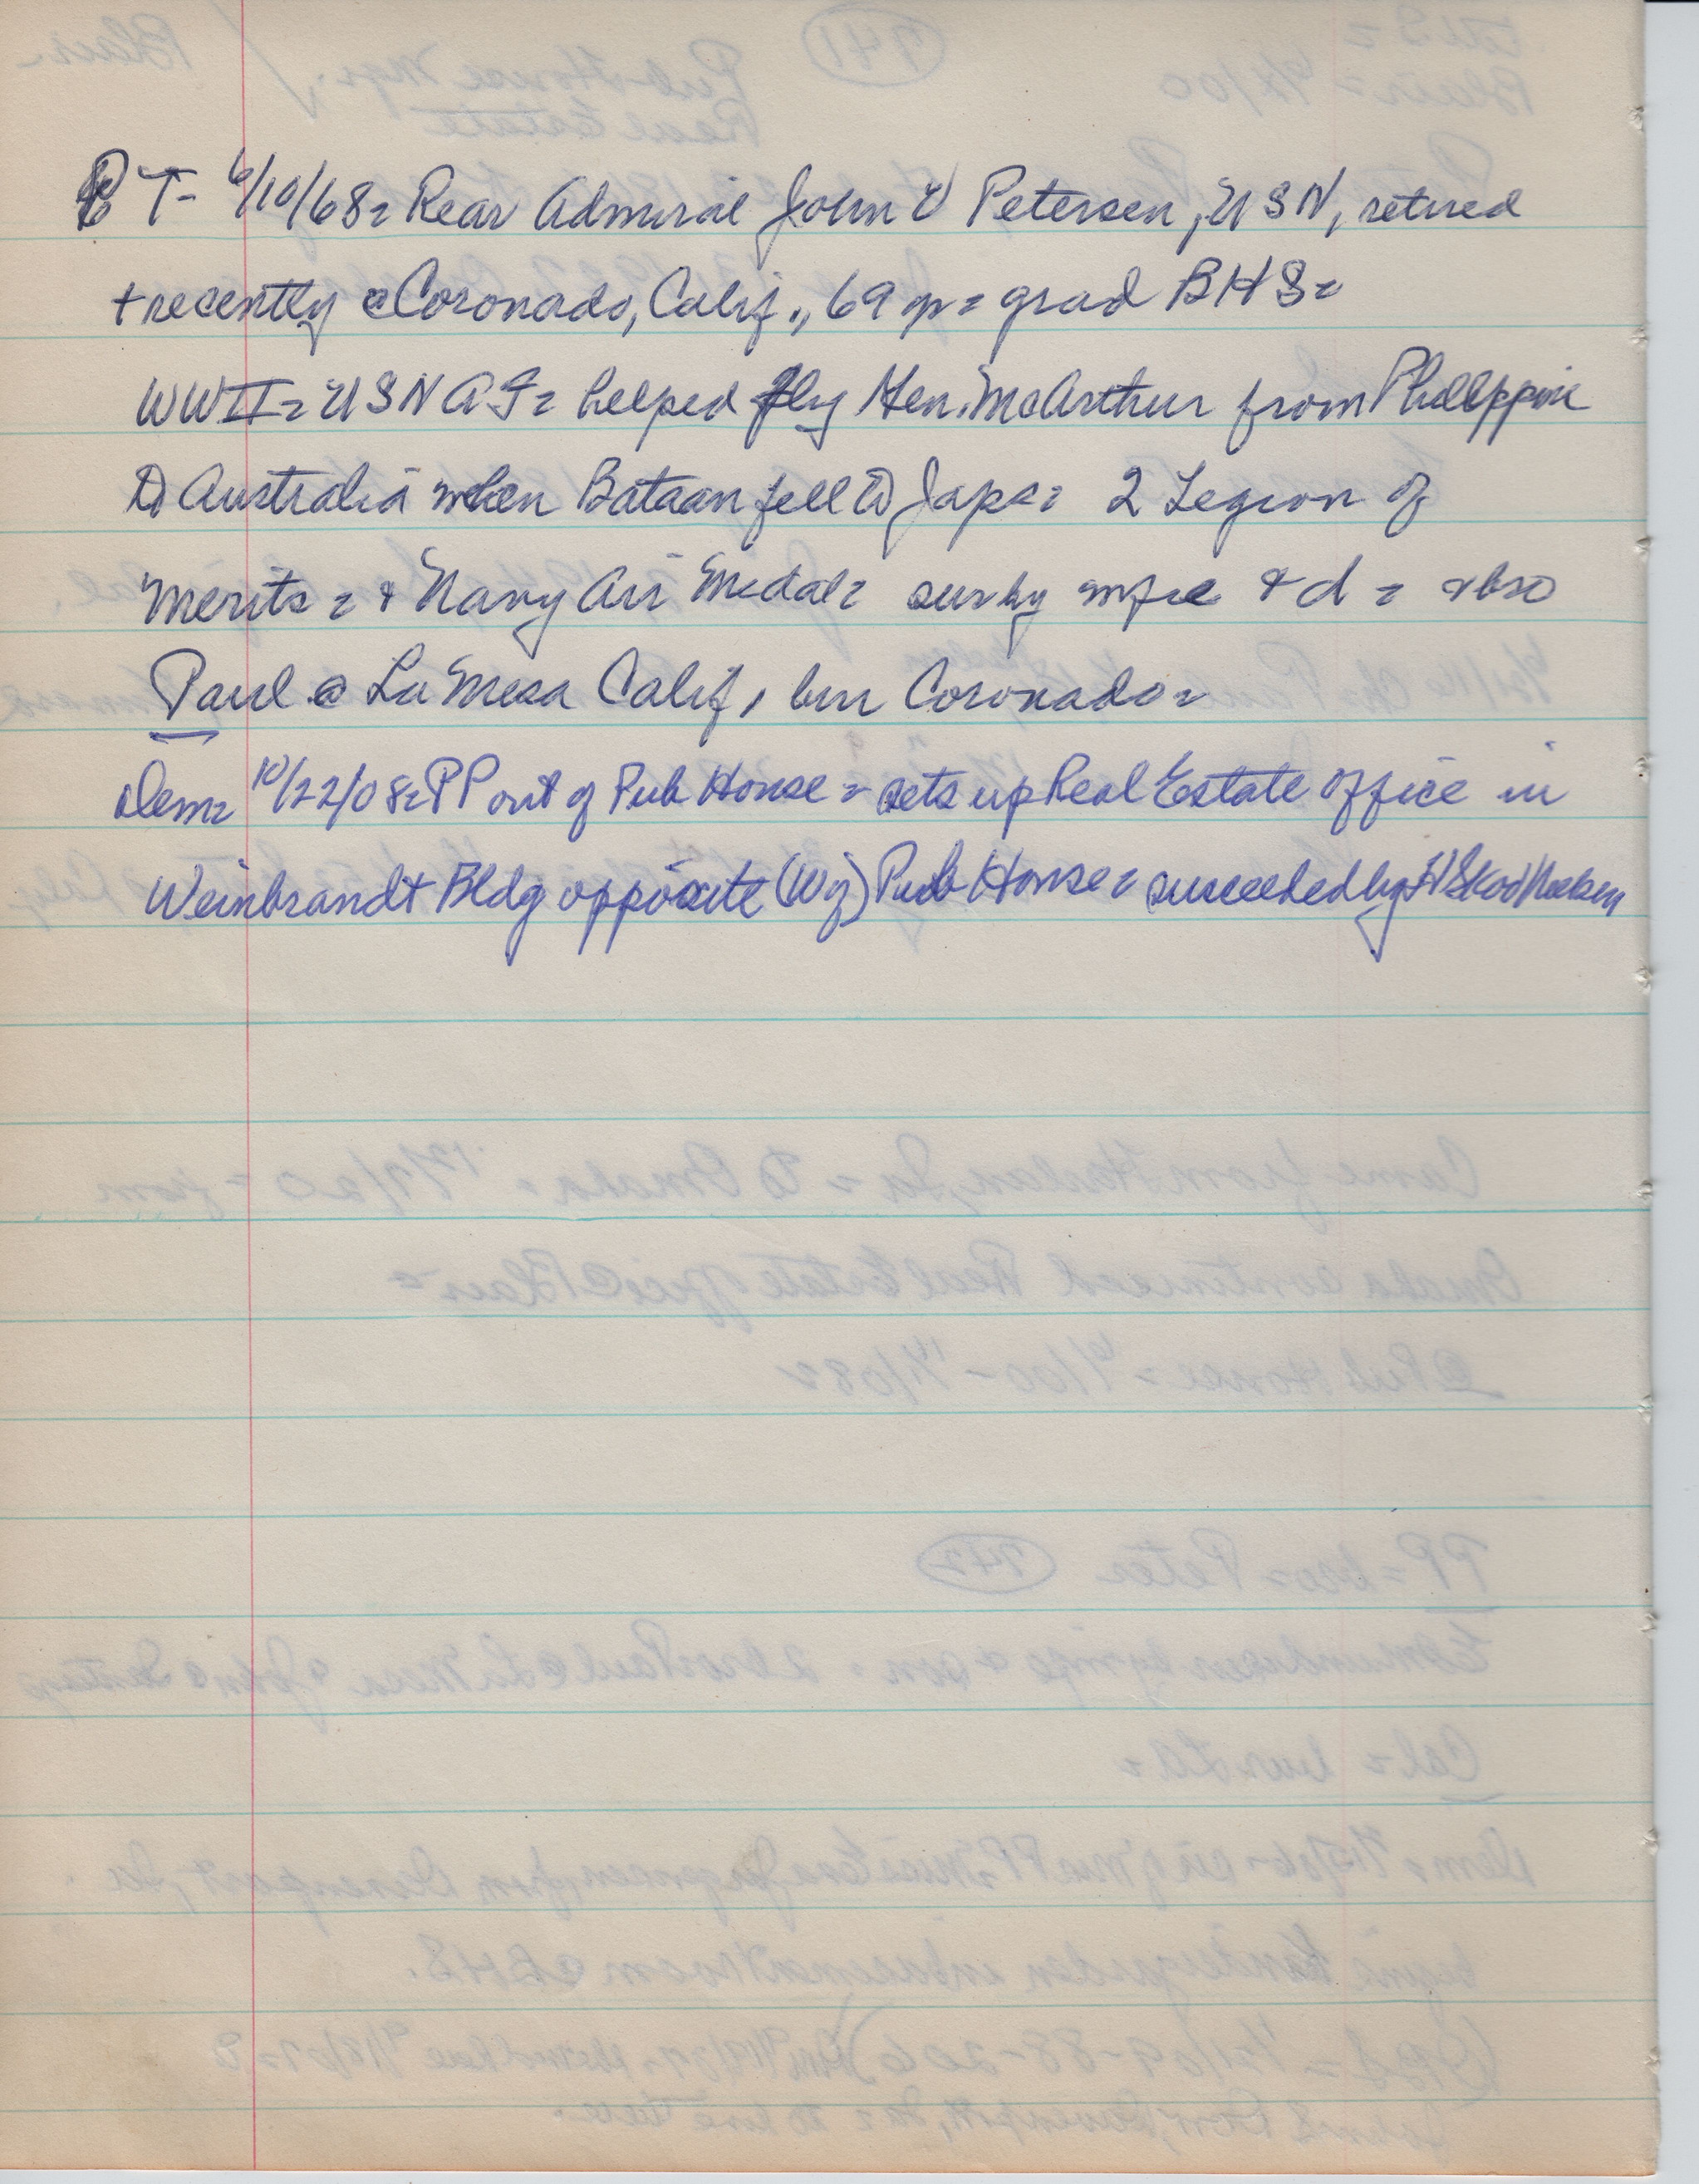 PT- 6/10/68= Rear Admiral John V Petersen, USN, retired
+ recently @ Coronado, Calif., 69 yr = grad BHS=
WWII= USNAF= helped fly Gen. McArthur from Philippine
to Australia when Bataan fell to Japs= 2 Legion of
Merits = + Navy Air Medal= sur by wife + d = + bro
Paul @ La Mesa Calif, bur Coronado=
Dem= 10/22/08= PP out of Pub House = sets up Real Estate Office in
Weinbrandt Bldg opposite (W of) Pub House= succeeded by